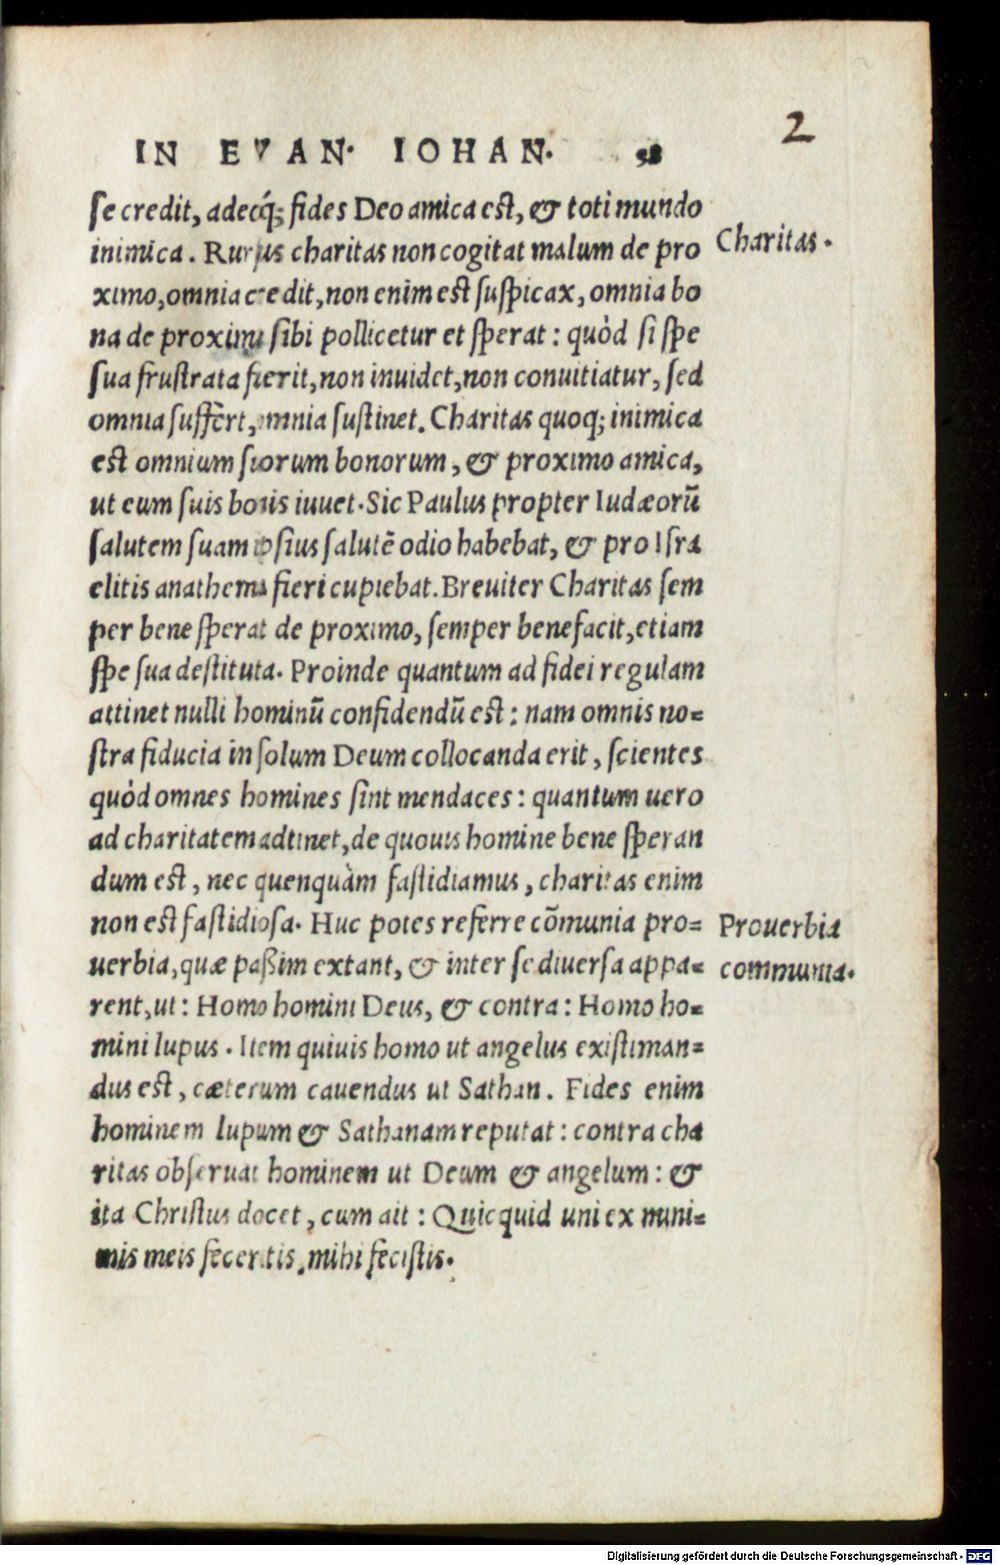 2
IN EVAN. IOHAN.
se credit, adeoq́; fides Deo amica est, & toti mundo
inimica. Rursus charitas non cogitat malum de pro
ximo, omnia credit, non enim est suspicax, omnia bo
na de proximo sibi pollicetur et sperat: quòd si spe
sua frustrata fierit, non inuidet, non conuitiatur, sed
omnia suffert, omnia sustinet. Charitas quoq; inimica
est omnium suorum bonorum, & proximo amica,
ut eum suis bonis iuuet. Sic Paulus propter Iudæorũ
salutem suam ipsius salutẽ odio habebat, & pro Isra
elitis anathema fieri cupiebat. Breuiter Charitas sem
per bene sperat de proximo, semper benefacit, etiam
spe sua destituta. Proinde quantum ad fidei regulam
attinet nulli hominũ confidendũ est: nam omnis no=
stra fiducia in solum Deum collocanda erit, scientes
quòd omnes homines sint mendaces: quantum uero
ad charitatem adtinet, de quouis homine bene speran
dum est, nec quenquàm fastidiamus, charitas enim
non est fastidiosa. Huc potes referre cõmunia pro=
uerbia, quæ paßim extant, & inter se diuersa appa=
rent, ut: Homo homini Deus, & contra: Homo ho=
mini lupus. Item quiuis homo ut angelus existiman=
dus est, cæterum cauendus ut Sathan. Fides enim
hominem lupum & Sathanam reputat: contra cha
ritas obseruat hominem ut Deum & angelum: &
ita Christus docet, cum ait: Quicquid uni ex mini=
mis meis feceritis, mihi fecistis.
Charitas.
Prouerbia
communia.
Digitalisierung gefördert durch die Deutsche Forschungsgemeinschaft - DFG